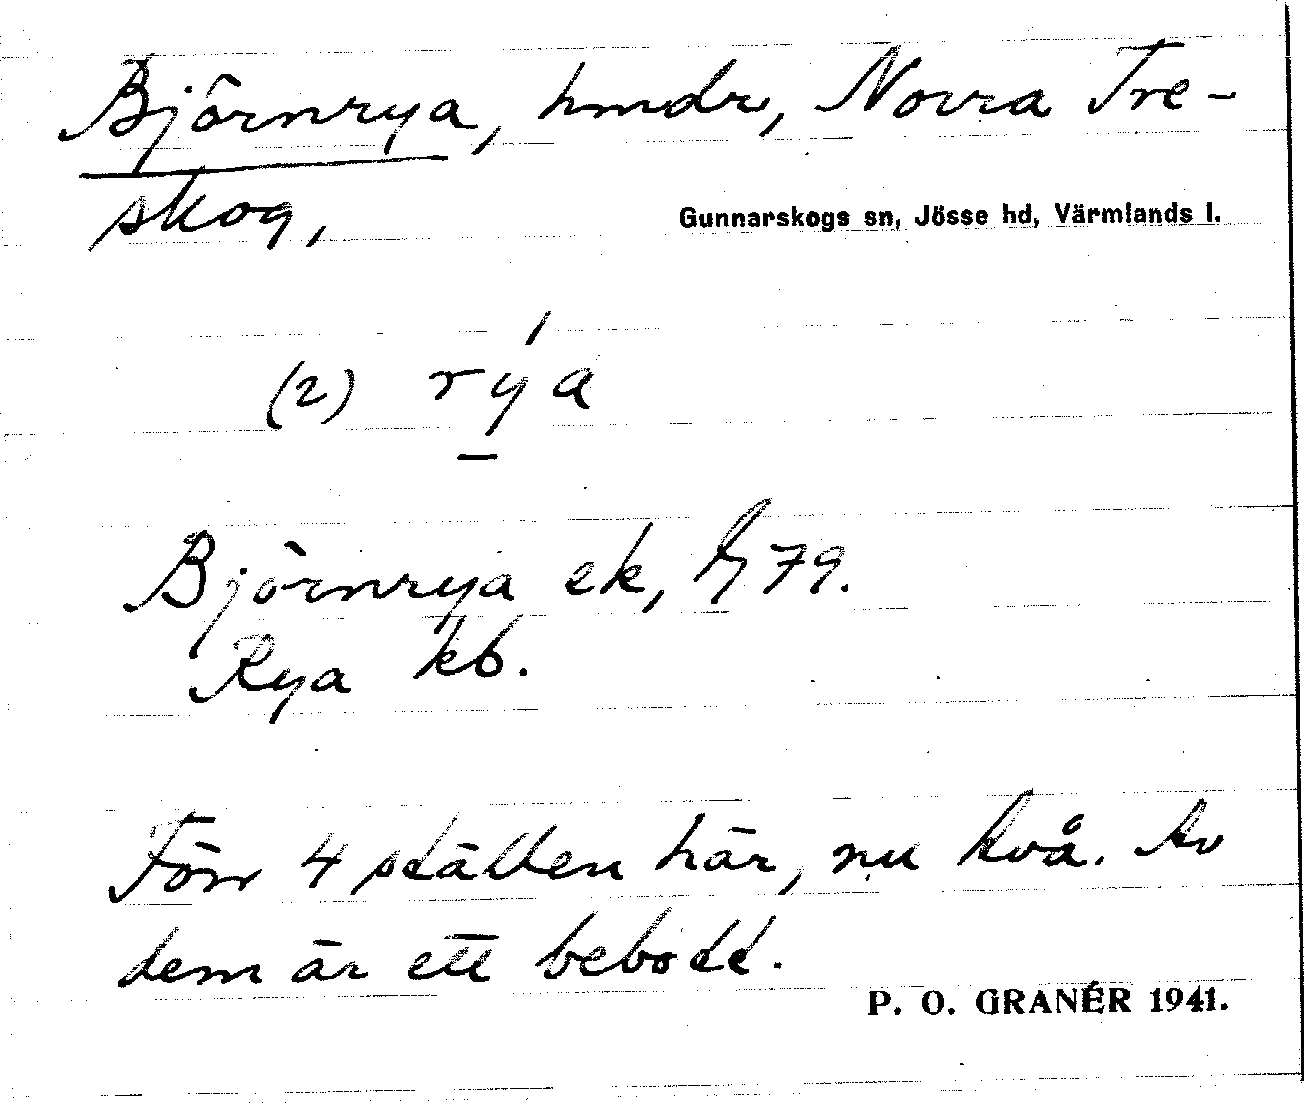 Björnrya, hmdr, Norra Tre-
skog,
Gunnarskogs sn, Jösse hd, Värmlands l.
(2) rýa
Björnrya ek, 79.
Rya kb.
Förr 4 ställen här, nu två. Av
dem är ett bebott.
P. O. GRANÉR 1941.